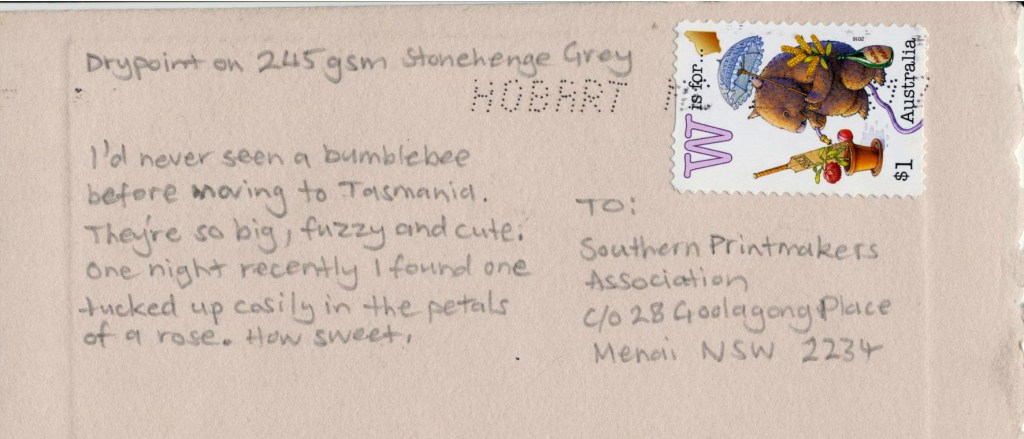 Drypoint on 245gsm Stonehenge Grey
HOBART
W is for...
2016
Australia
$1
I'd never seen a bumblebee
before moving to Tasmania.
They're so big, fuzzy and cute.
One night recently I found one
tucked up cosily in the petals
of a rose. How sweet.
TO:
Southern Printmakers
Association
c/o 28 Goolagong Place
Menai NSW 2234